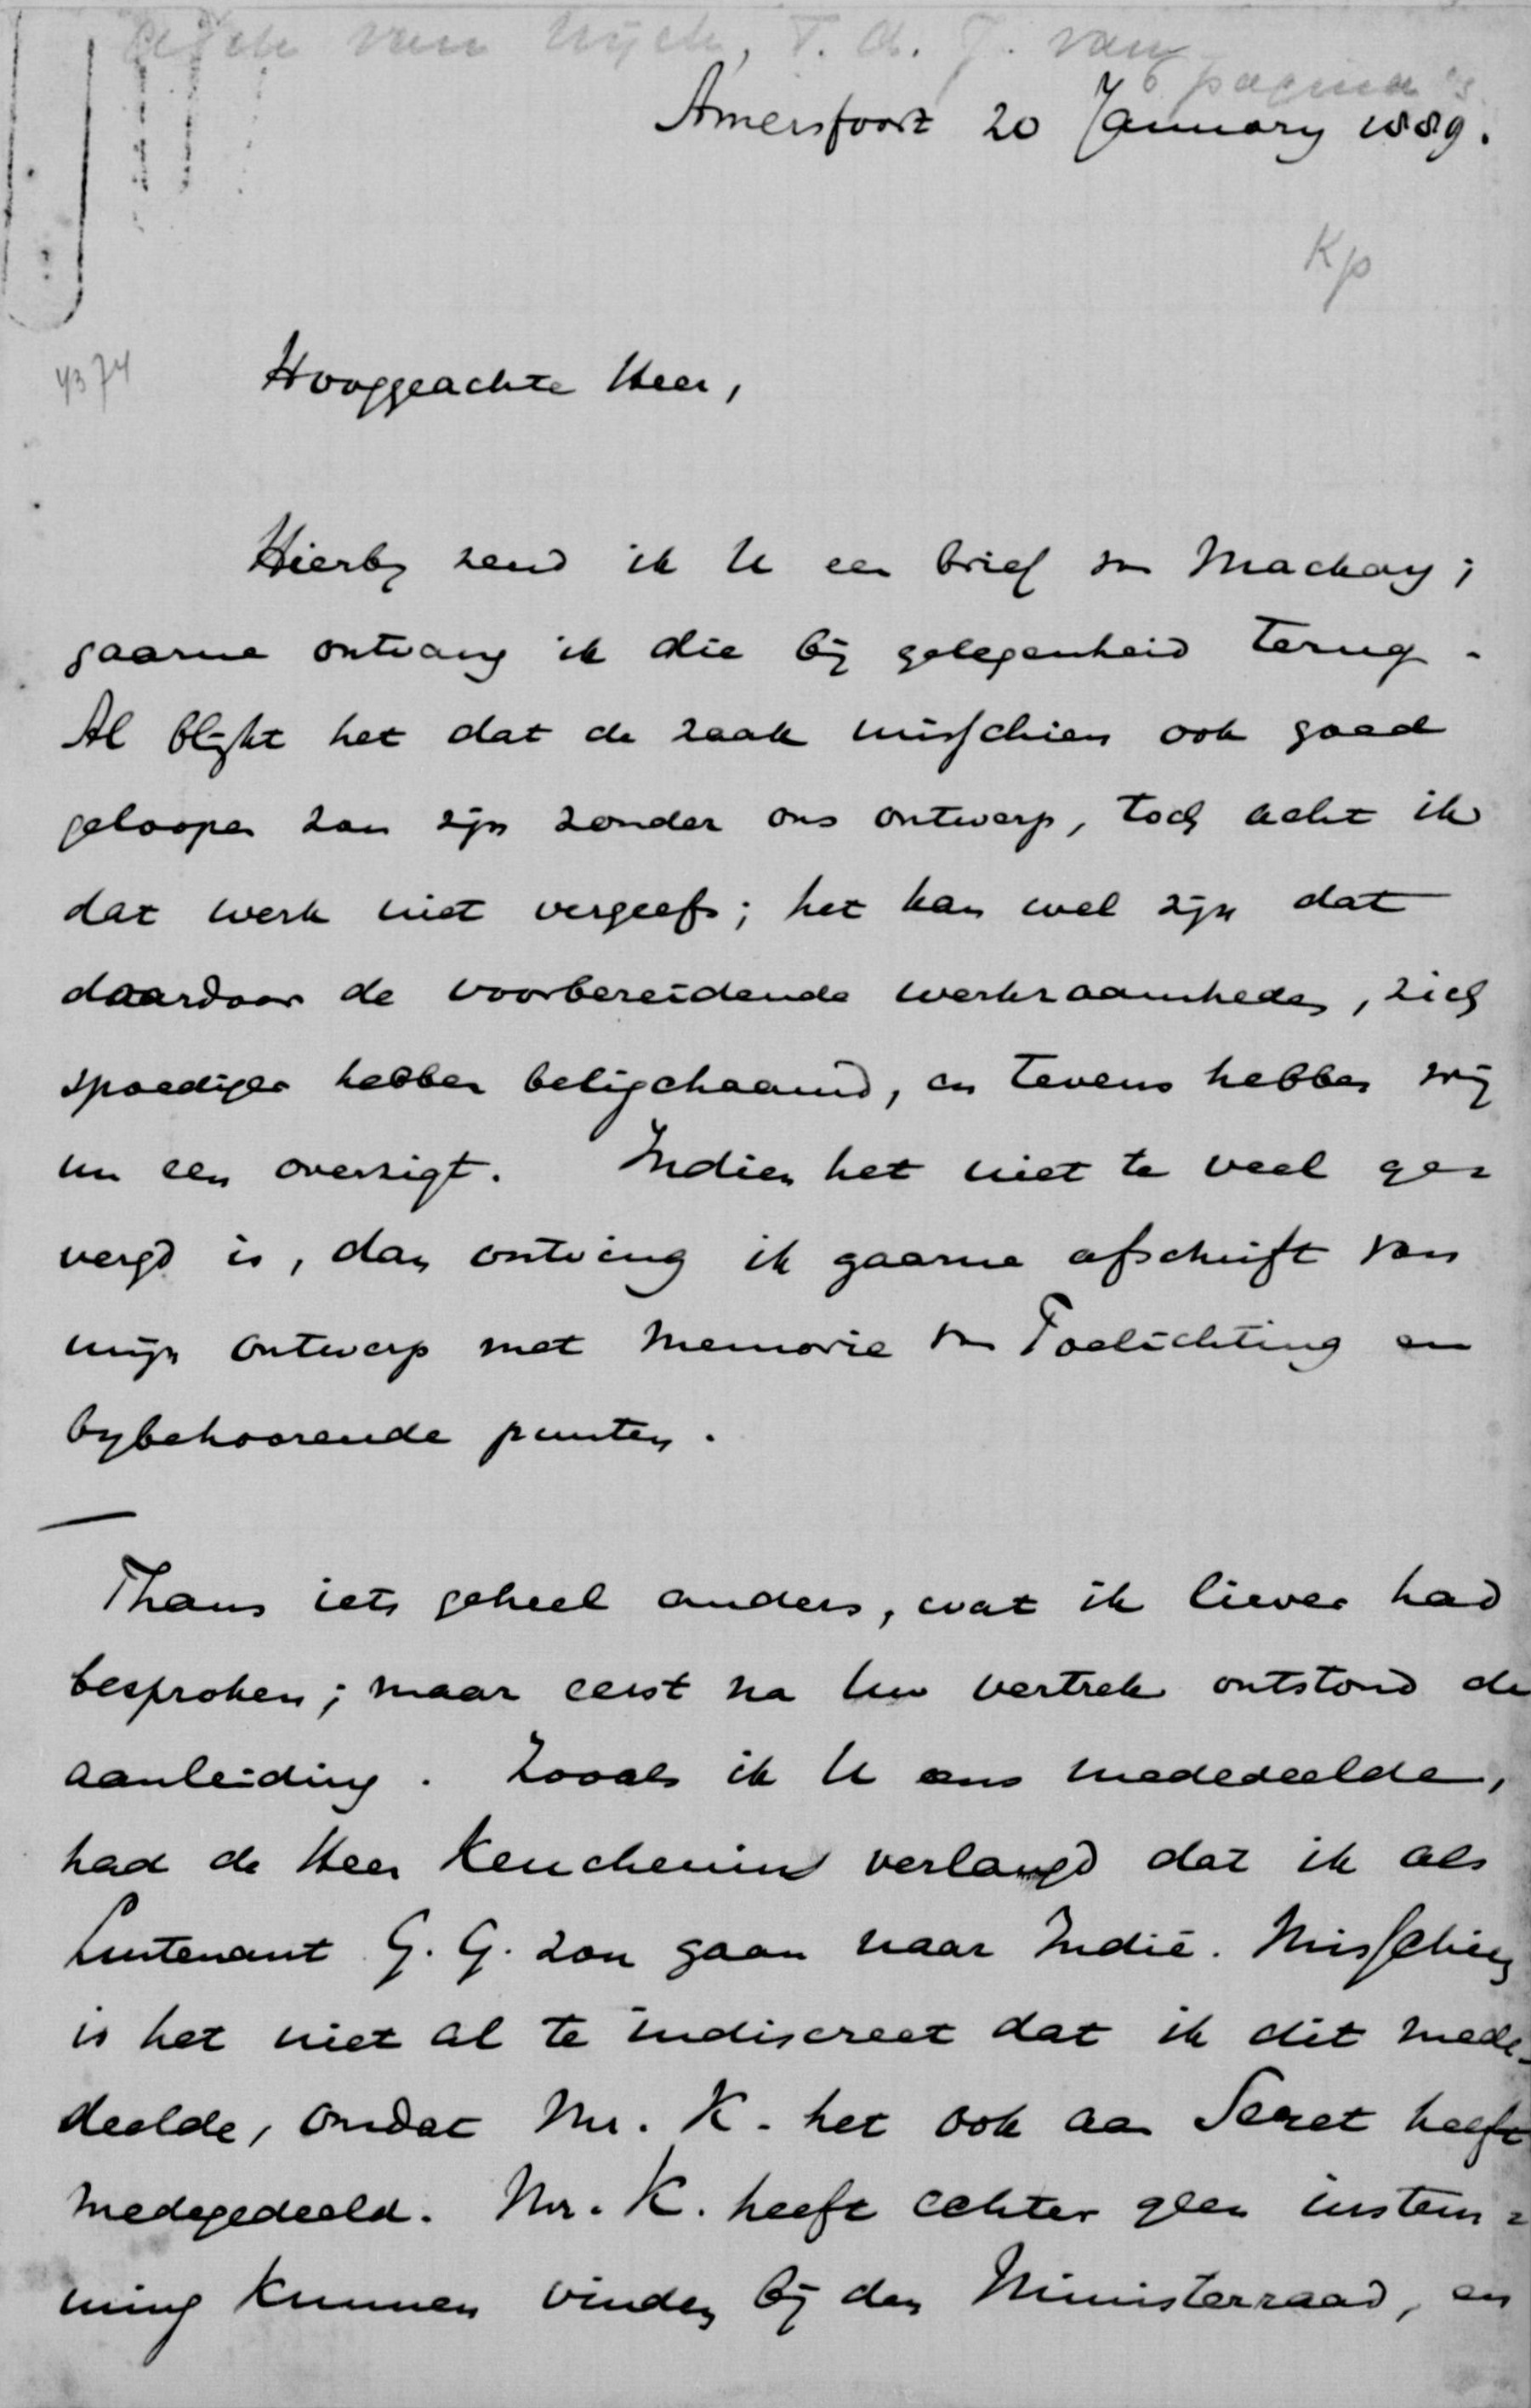 van Nijck, T. A. J. van
6 pagina's
Amersfoort 20 January 1889.
Kp
4374
Hooggeachte Heer,
Hierby zend ik U een brief van Mackay;
gaarne ontvang ik die bij gelegenheid terug.
Al blijkt het dat de zaak misschien ook goed
geloopen zou zijn zonder ons ontwerp, toch acht ik
dat werk niet vergeefs; het kan wel zijn dat
daardoor de voorbereidende werkzaamheden, zich
spoediger hebben beligchaamd, en tevens hebben wij
nu een overzigt. Indien het niet te veel ge=
vergd is, dan ontving ik gaarne afschrift van
mijn ontwerp met Memorie van Toelichting en
bybehoorende punten.
Thans iets geheel anders, wat ik liever had
besproken; maar eerst na Uw vertrek ontstond de
aanleiding. Zooals ik U eens mededeelde,
had de Heer Keuchenius verlangd dat ik als
Luitenant G. G. zou gaan naar Indië. Misschien
is het niet al te indiscreet dat ik dit mede-
deelde, omdat Mr. K. het ook aan Seret heeft
medegedeeld. Mr. K. heeft echter geen instem=
ming kunnen vinden bij den Ministerraad, en